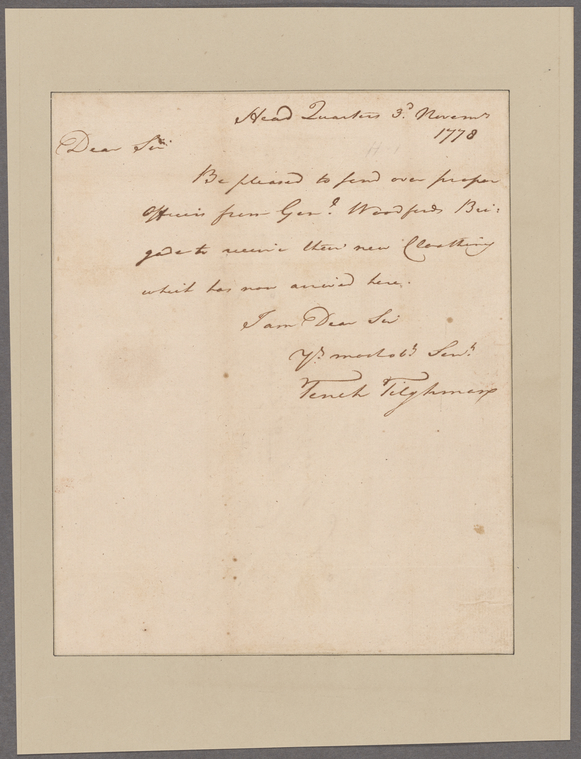 Head Quarters 3d. Novemr
1778
Dear Sir
Be pleased to send over proper
Officers from Genl. Woodfords Bri-
gade to receive their new Cloathing
which has now arrived here.
I am Dear Sir
Yr. most obt. Servt.
Tench Tilghman